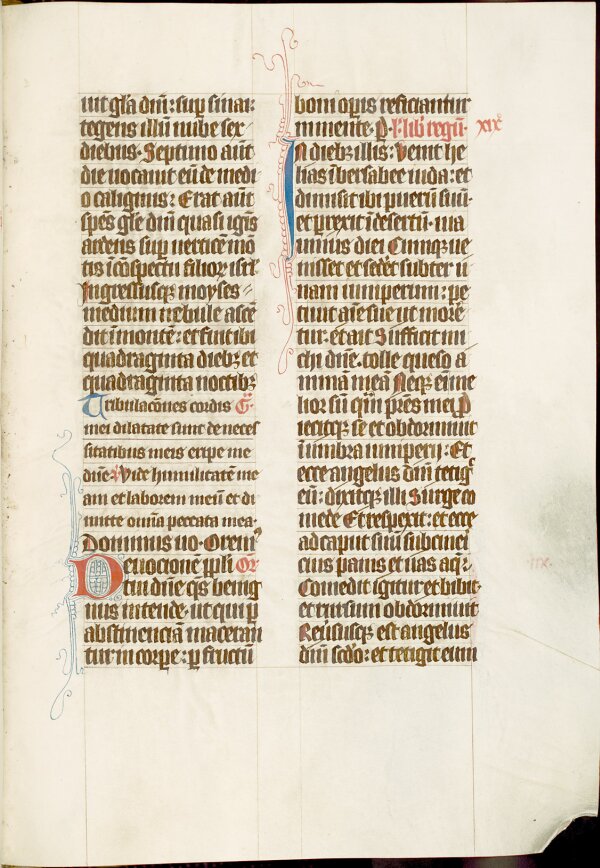 uit gl̄a dn̄i : sup̄ sinai :
tegens illū nube sex
diebus · Septimo aūt
die uocauit eū de medi
o caliginis : Erat aūt
spēs gl̄e dn̄i quasi ignis
ardens sup̄ uerticē mō
tis ī cōspectu filior̄ isrl̄ ·
Ingressusq; moyses
medium nebule ascē
dit ī montē : et fuit ibi
quadraginta dieb; et
quadraginta noctib;
Tribulac̄ones cordis G̃ ·
mei dilatate sunt de neces
sitatibus meis eripe me
dn̄e · V̄ Uide humilitatē me
am et laborem meū et di
mitte omīa peccata mea ·
Dominus uo · Orem̄
Deuocionē ppl̄i Or̄
tui dn̄e qs̄ benig
nus intende · ut qui p̄
abstinenciā maceran
tur in corpe : p̄ fructū
boni op̄is reficiantur
in mente · P̄ · l̄ · lib̄ regū · xix̊
In dieb; illis : Uenit he
lias ī bersabee iuda : et
dimisit ibi puerū suū ·
et p̄rexit ī desertū · uia
unius diei Cumque ue
nisset et sed̄et subter u
nam iuniperum : pe
tiuit aīe sue ut more
tur : et ait Sufficit mi
chi dn̄e · tolle queso a
nimā meā Neq; enī me
lior sū q̄m p̄res mei P̄
iecitq; se et obdormiuit
ī umbra iuniperi : Et
ecce angelus dn̄i tetiḡ
eū : dixitq; illi Surge co
mede Et respexit : et ecce
ad caput suū subcine
cius panis et uas aq̄ :
Comedit igitur et bibit ·
et rursum obdormiuit
Reūsusq; est angelus
dn̄i scd̄o : et tetigit eum